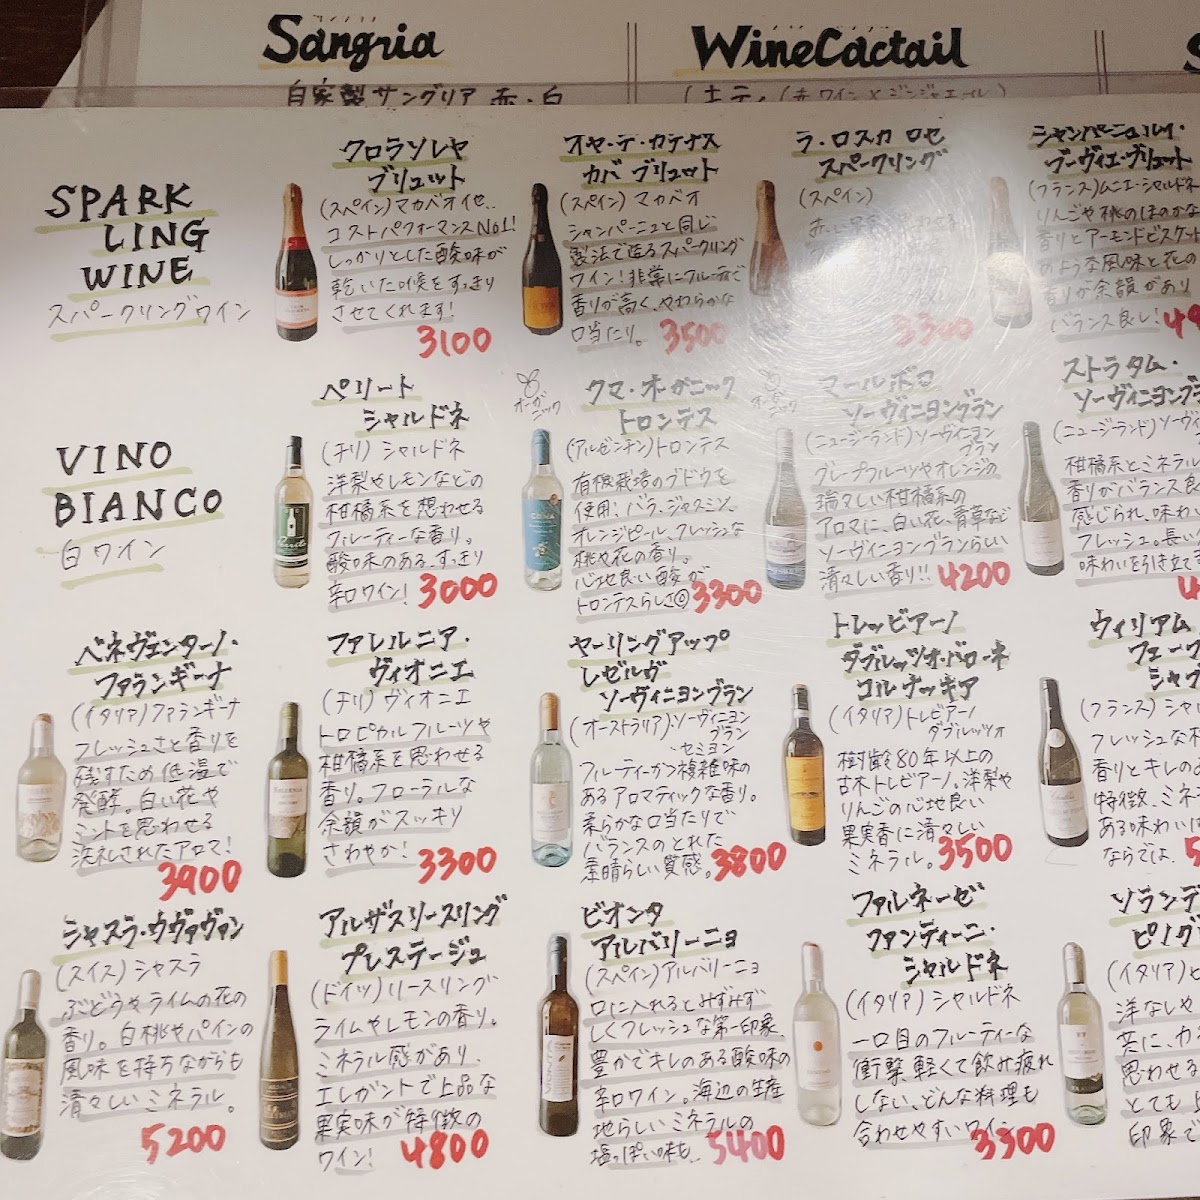 Sangria
自家製サングリア 赤・白
WineCactail
SPARK
LING
WINE
スパークリングワイン
クロラソレヤ
ブリュット
(スペイン)マカベオ他、
コストパフォーマンスNo1!
しっかりとした酸味が
乾いた喉をすっきり
させてくれます!
3100
オヤ・デ・カデナス
カバ ブリュット
(スペイン) マカベオ
シャンパーニュと同じ
製法で造るスパークリング
ワイン!非常にフルーティで
香りが高く、やわらかな
口当たり。
3500
ラ・ロスカ ロセ
スパークリング
(スペイン)
3300
シャンパーニュルイ・
ブーヴィエ・ブリュット
(フランス)ムニエ・シャルドネ
りんごや桃のほのかな
香りとアーモンドビスケット
のような風味と花の
香りが余韻があり
バランス良し!
VINO
BIANCO
白ワイン
ペリート
シャルドネ
(チリ) シャルドネ
洋梨やレモンなどの
柑橘系を想わせる
フルーティーな香り。
酸味のある、すっきり
辛口ワイン!
3000
オーガニック
クマ・オーガニック
トロンテス
(アルゼンチン)トロンテス
有機栽培のブドウを
使用!バラ、ジャスミン、
オレンジピール、フレッシュな
桃や花の香り。
心地良い酸が
トロンテスらしさ◎
3300
オーガニック
マールボロ
ソーヴィニヨンブラン
(ニュージーランド)ソーヴィニヨン
ブラン
グレープフルーツやオレンジの
瑞々しい柑橘系の
アロマに、白い花、青草など
ソーヴィニヨンブランらしい
清々しい香り!!
4200
ストラタム・
ソーヴィニヨンブラン
(ニュージーランド)ソーヴィ
柑橘系とミネラル
香りがバランス良
感じられ、味わい
フレッシュ。長い
味わいを引き立て
ベネヴェンターノ・
ファランギーナ
(イタリア)ファランギーナ
フレッシュさと香りを
残すため低温で
発酵。白い花や
ミントを思わせる
洗礼されたアロマ!
3900
ファレルニア・
ヴィオニエ
(チリ) ヴィオニエ
トロピカルフルーツや
柑橘系を思わせる
香り。フローラルな
余韻がスッキリ
さわやか!
3300
ヤーリングアップ
レゼルヴ
ソーヴィニヨンブラン
(オーストラリア)・ソーヴィニヨン
ブラン
・セミヨン
フルーティーかつ複雑味の
あるアロマティックな香り。
柔らかな口当たりで
バランスのとれた
素晴らしい質感。
3800
トレッビアーノ
ダブルッツォ・バローネ
コルナッキア
(イタリア)トレビアーノ
ダブルッツォ
樹齢80年以上の
古木トレビアーノ。洋梨や
りんごの心地良い
果実香に清々しい
ミネラル。
3500
ウィリアム
フェーブ
シャブ
(フランス) シャル
フレッシュな柑
香りとキレのよ
特徴。ミネ
ある味わいは
ならでは。
シャスラ・ウヴァヴァン
(スイス) シャスラ
ぶどうやライムの花の
香り。白桃やパインの
風味を持ちながらも
清々しいミネラル。
5200
アルザスリースリング
プレステージュ
(ドイツ)リースリング
ライムやレモンの香り。
ミネラル感があり、
エレガントで上品な
果実味が特徴の
ワイン!
4800
ビオンタ
アルバリーニョ
(スペイン)アルバリーニョ
口に入れるとみずみず
しくフレッシュな第一印象、
豊かでキレのある酸味の
辛口ワイン。海辺の生産
地らしいミネラルの
塩っぽい味も。
5400
ファルネーゼ
ファンティーニ・
シャルドネ
(イタリア) シャルドネ
一口目のフルーティーな
衝撃、軽くて飲み疲れ
しない、どんな料理も
合わせやすいワイン
3300
ソランデ
ピノグ
(イタリア)ヒ
洋なしや
共に、カ
思わせる
とても
印象で